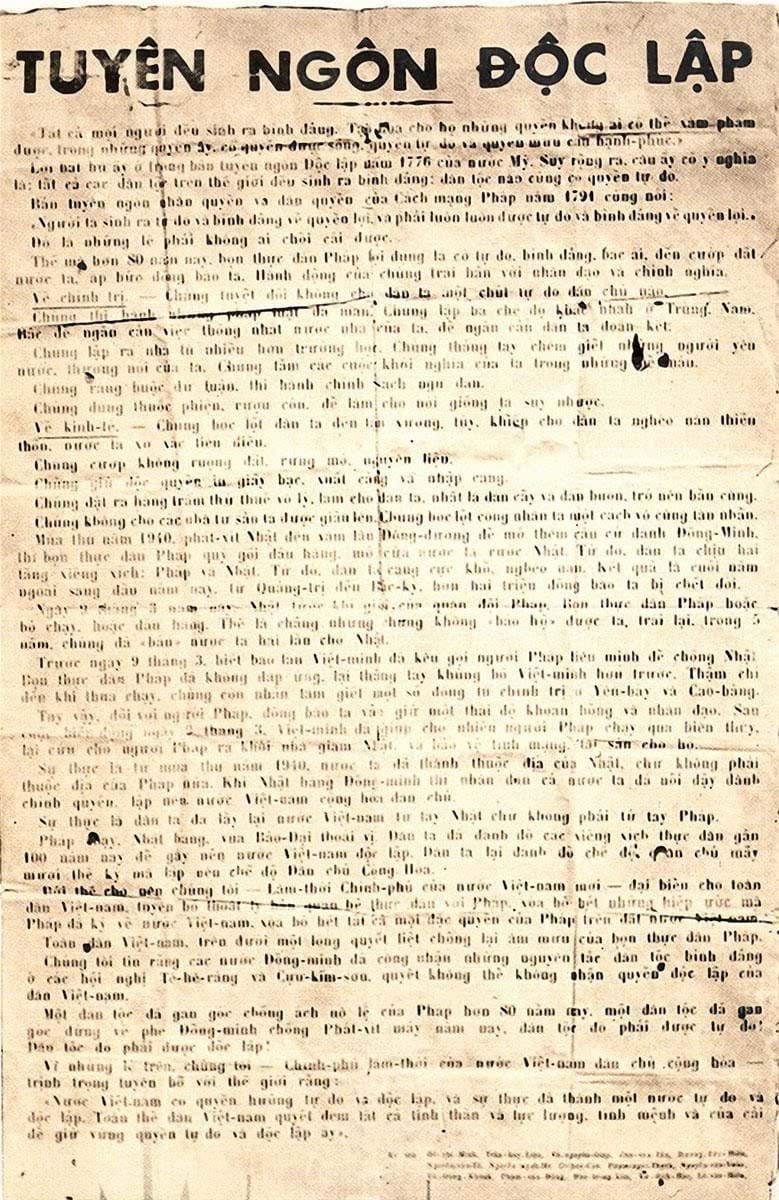 TUYÊN NGÔN ĐỘC LẬP
«Tất cả mọi người đều sinh ra bình đẳng. Tạo hóa cho họ những quyền không ai có thể xâm phạm
được, trong những quyền ấy, có quyền được sống, quyền tự do và quyền mưu cầu hạnh-phúc.»
Lời bất hủ ấy ở trong bản tuyên ngôn Độc lập năm 1776 của nước Mỹ. Suy rộng ra, câu ấy có ý nghĩa
là: tất cả các dân tộc trên thế giới đều sinh ra bình đẳng; dân tộc nào cũng có quyền tự do.
Bản tuyên ngôn nhân quyền và dân quyền của Cách mạng Pháp năm 1791 cũng nói:
«Người ta sinh ra tự do và bình đẳng về quyền lợi, và phải luôn luôn được tự do và bình đẳng về quyền lợi.»
Đó là những lẽ phải không ai chối cãi được.
Thế mà hơn 80 năm nay, bọn thực dân Pháp lợi dụng lá cờ tự do, bình đẳng, bác ái, đến cướp đất
nước ta, áp bức đồng bào ta. Hành động của chúng trái hẳn với nhân đạo và chính nghĩa.
Về chính trị. — Chúng tuyệt đối không cho dân ta một chút tự do dân chủ nào.
Chúng thi hành những pháp luật dã man. Chúng lập ba chế độ khác nhau ở Trung, Nam,
Bắc để ngăn cản việc thống nhất nước nhà của ta, để ngăn cản dân ta đoàn kết.
Chúng lập ra nhà tù nhiều hơn trường học. Chúng thẳng tay chém giết những người yêu
nước, thương nòi của ta. Chúng tắm các cuộc khởi nghĩa của ta trong những bể máu.
Chúng ràng buộc dư luận, thi hành chính sách ngu dân.
Chúng dùng thuốc phiện, rượu cồn, để làm cho nòi giống ta suy nhược.
Về kinh-tế. — Chúng bóc lột dân ta đến tận xương, tủy, khiến cho dân ta nghèo nàn thiếu
thốn, nước ta xơ xác tiêu điều.
Chúng cướp không ruộng đất, rừng mỏ, nguyên liệu.
Chúng giữ độc quyền in giấy bạc, xuất cảng và nhập cảng.
Chúng đặt ra hàng trăm thứ thuế vô lý, làm cho dân ta, nhất là dân cầy và dân buôn, trở nên bần cùng.
Chúng không cho các nhà tư sản ta được giầu lên. Chúng bóc lột công nhân ta một cách vô cùng tàn nhẫn.
Mùa thu năm 1940, phát-xít Nhật đến xâm lăn Đông-dương để mở thêm căn cứ đánh Đồng-Minh,
thì bọn thực dân Pháp quỳ gối đầu hàng, mở cửa nước ta rước Nhật. Từ đó, dân ta chịu hai
tầng xiềng xích: Pháp và Nhật. Từ đó, dân ta càng cực khổ, nghèo nàn. Kết quả là cuối năm
ngoái sang đầu năm nay, từ Quảng-trị đến Bắc-kỳ, hơn hai triệu đồng bào ta bị chết đói.
Ngày 9 tháng 3 năm nay, Nhật tước khí giới của quân đội Pháp. Bọn thực dân Pháp hoặc
bỏ chạy, hoặc đầu hàng. Thế là chẳng những chúng không «bảo hộ» được ta, trái lại, trong 5
năm, chúng đã «bán» nước ta hai lần cho Nhật.
Trước ngày 9 tháng 3, biết bao lần Việt-minh đã kêu gọi người Pháp liên minh để chống Nhật.
Bọn thực dân Pháp đã không đáp ứng, lại thẳng tay khủng bố Việt-minh hơn trước. Thậm chí
đến khi thua chạy, chúng còn nhẫn tâm giết một số đông tù chính trị ở Yên-báy và Cao-bằng.
Tuy vậy, đối với người Pháp, đồng bào ta vẫn giữ một thái độ khoan hồng và nhân đạo. Sau
cuộc biến động ngày 9 tháng 3, Việt-minh đã giúp cho nhiều người Pháp chạy qua biên thùy,
lại cứu cho người Pháp ra khỏi nhà giam Nhật, và bảo vệ tính mạng, tài sản cho họ.
Sự thực là từ mùa thu năm 1940, nước ta đã thành thuộc địa của Nhật, chứ không phải
thuộc địa của Pháp nữa. Khi Nhật hàng Đồng-minh thì nhân dân cả nước ta đã nổi dậy dành
chính quyền, lập nên nước Việt-nam cộng hòa dân chủ.
Sự thực là dân ta đã lấy lại nước Việt-nam từ tay Nhật chứ không phải từ tay Pháp.
Pháp chạy, Nhật hàng, vua Bảo-Đại thoái vị. Dân ta đã đánh đổ các xiềng xích thực dân gần
100 năm nay để gây nên nước Việt-nam độc lập. Dân ta lại đánh đổ chế độ quân chủ mấy
mươi thế kỷ mà lập nên chế độ Dân chủ Cộng Hòa.
Bởi thế cho nên chúng tôi — Lâm-thời Chính-phủ của nước Việt-nam mới — đại biểu cho toàn
dân Việt-nam, tuyên bố thoát ly hẳn quan hệ thực dân với Pháp, xóa bỏ hết những hiệp ước mà
Pháp đã ký về nước Việt-nam, xóa bỏ hết tất cả mọi đặc quyền của Pháp trên đất nước Việt-nam.
Toàn dân Việt-nam, trên dưới một lòng quyết liệt chống lại âm mưu của bọn thực dân Pháp.
Chúng tôi tin rằng các nước Đồng-minh đã công nhận những nguyên tắc dân tộc bình đẳng
ở các hội nghị Tê-hê-răng và Cựu-kim-sơn, quyết không thể không nhận quyền độc lập của
dân Việt-nam.
Một dân tộc đã gan góc chống ách nô lệ của Pháp hơn 80 năm nay, một dân tộc đã gan
góc đứng về phe Đồng-minh chống Phát-xít mấy năm nay, dân tộc đó phải được tự do!
Dân tộc đó phải được độc lập!
Vì những lẽ trên, chúng tôi — Chính-phủ lâm-thời của nước Việt-nam dân chủ cộng hòa —
trịnh trọng tuyên bố với thế giới rằng:
«Nước Việt-nam có quyền hưởng tự do và độc lập, và sự thực đã thành một nước tự do và
độc lập. Toàn thể dân Việt-nam quyết đem tất cả tinh thần và lực lượng, tính mệnh và của cải
để giữ vững quyền tự do và độc lập ấy».
Hồ-chí-Minh, Trần-huy-Liệu, Võ-nguyên-Giáp, Chu-văn-Tấn, Dương-Đức-Hiền,
Nguyễn-văn-Tố, Nguyễn-mạnh-Hà, Cù-huy-Cận, Phạm-ngọc-Thạch, Nguyễn-văn-Xuân,
Vũ-trọng-Khánh, Phạm-văn-Đồng, Đào-trọng-Kim, Vũ-đình-Hòe, Lê-văn-Hiến.